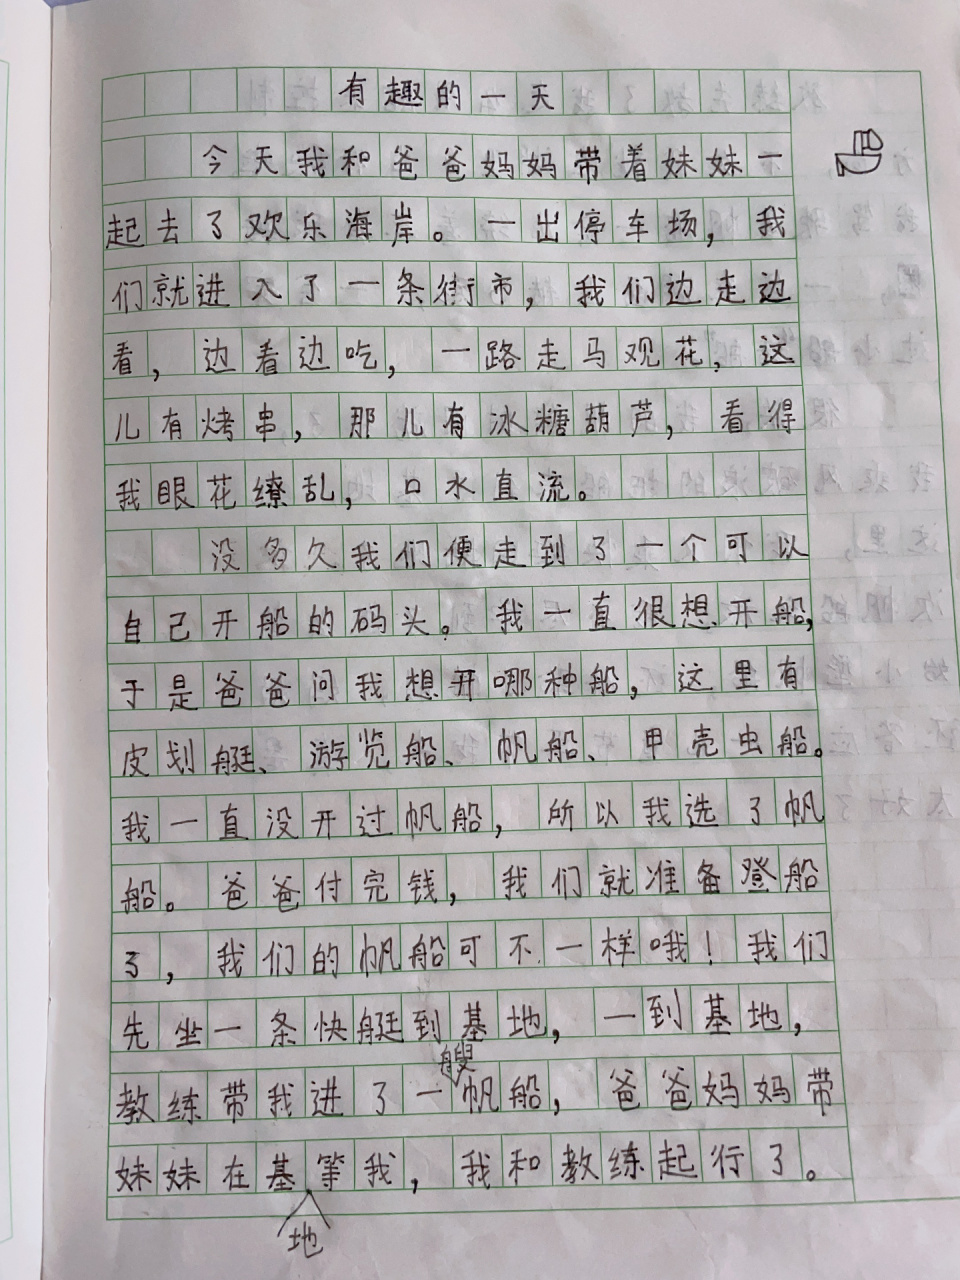 有趣的一天
今天我和爸爸妈妈带着妹妹一
起去了欢乐海岸。一出停车场，我
们就进入了一条街市，我们边走边
看，边看边吃，一路走马观花，这
儿有烤串，那儿有冰糖葫芦，看得
我眼花缭乱，口水直流。
没多久我们便走到了一个可以
自己开船的码头。我一直很想开船，
于是爸爸问我想开哪种船，这里有
皮划艇、游览船、帆船、甲壳虫船。
我一直没开过帆船，所以我选了帆
船。爸爸付完钱，我们就准备登船
了，我们的帆船可不一样哦！我们
先坐一条快艇到基地，一到基地，
教练带我进了一艘帆船，爸爸妈妈带
妹妹在基地等我，我和教练起行了。